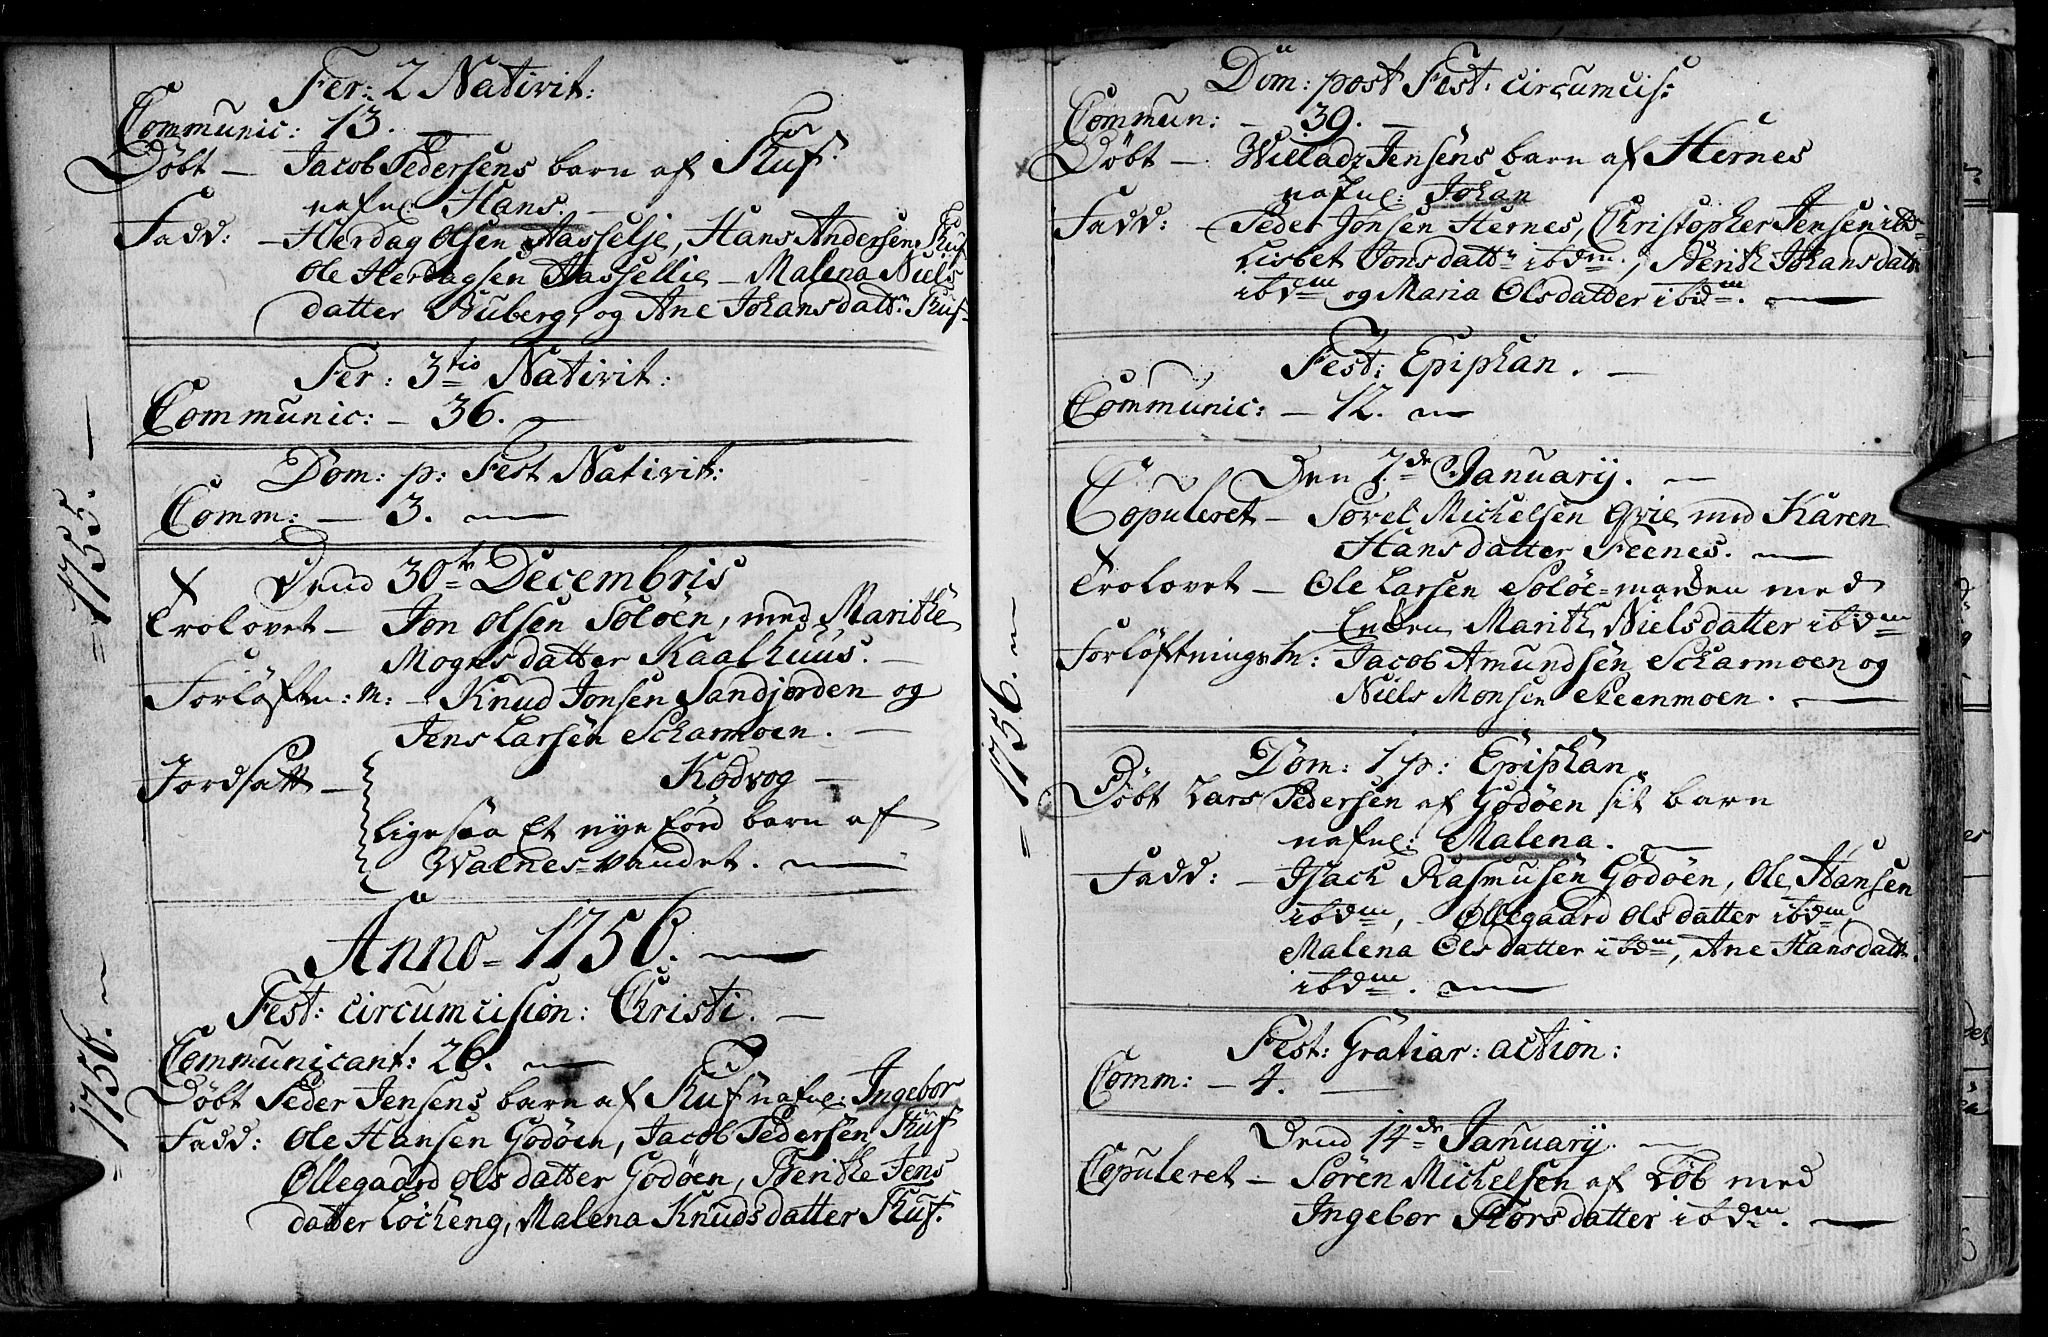 = 1755. —
= 1756. —
Fer: 2 Nativit:
Communic: 13. —
Döbt — Jacob Pedersens barn af Skuf.
nafnl Hans. —
Fadd: — Herdag Olsen Aasselje, Hans Andersen Skuf
Ole Herdagsen Aassellie — Malena Niels
datter Buberg, og Ane Johansdattr Skuf
Fer: 3tio Nativit:
Communic: — 36. —
Dom: p: Fest Nativit:
Comm: — 3. —
Dend 30te Decembris
Trolovet — Jon Olsen Soloen, med Marithe
Mognsdatter Kaalhuus. —
Forlöftn: m: — Knud Jonsen Sandjorden og
Jens Larsen Scharmoen. —
Jordsatt — Kodvog —
Ligesaa Et nye förd barn af
Walnes-vandet. —
Anno = 1756. —
Fest: circumcision: Christi. —
Communicant: 26. —
Döbt Peder Jensens barn af Skuf nafnl: Ingebor
Fadd: Ole Hansen Godöen, Jacob Pedersen Skuf
Ollegaard Olsdatter Godöen, Berithe Jens
datter Löcheng, Malena Knudsdatter Skuf.
= 1756. —
Dom: post Fest: circumcis:
Commun: — 39. —
Döbt —. Willadz Jensens barn af Hernes
nafnl: Johan
Fadd: — Peder Jonsen Hernes, Christopher Jensen ibd=
Lisbet Jonsdattr ibdm., Berith Johansdattr
ibdm og Maria Olsdatter ibdm. —
Fest: Epiphan. —
Communic: — 12. —
Den 7de January. —
Copuleret — Sovel Michelsen Qvie med Karen
Hansdatter Feenes. —
Trolovet — Ole Larsen Solöe-marken med
Enken Marith Nielsdatter ibdm
Forlöftnings m: Jacob Amundsen Scharmoen og
Niels Monsen Steenmoen. —
Dom: 1 p: Epiphan.
Döbt Lars Pedersen af Godöen sit barn
nafnl: Malena. —
Fadd: — Isach Rasmusen Godöen, Ole Hansen
ibdm, — Ollegaard Olsdatter ibdm,
Malena Olsdatter ibdm, Ane Hansdattr
ibdm. —
Fest: Gratiar: action:
Comm: — 4. —
Dend 14de January. —
Copuleret — Sören Michelsen af Löb med
Ingebor Torsdatter ibdm. —